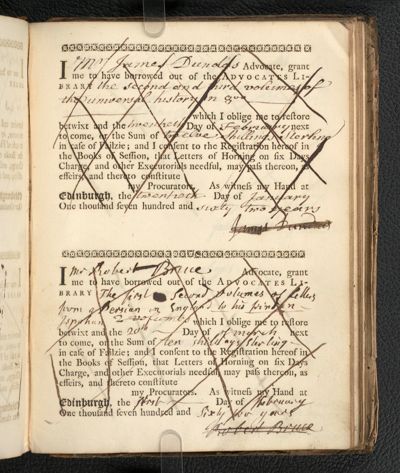 I Mr James Dundas Advocate, grant
me to have borrowed out of the ADVOCATES LI-
BRARY the second and third volumes of
the universal history in 8vo
which I oblige me to restore
betwixt and the twentieth Day of February next
to come, or the Sum of twelve shillings sterling
in case of Failzie; and I consent to the Registration hereof in
the Books of Session, that Letters of Horning on six Days
Charge, and other Executorials needful, may pass thereon, as
effeirs, and thereto constitute
my Procurators. As witness my Hand at
Edinburgh, the twentieth Day of January
One thousand seven hundred and sixty two years
James Dundas
I Mr Robert Bruce Advocate, grant
me to have borrowed out of the ADVOCATES LI-
BRARY The first & Second Volumes of Letters
from a Persian in England to his friend in
Ispahan
which I oblige me to restore
betwixt and the 20th Day of March next
to come, or the Sum of ten shillings Sterling
in case of Failzie; and I consent to the Registration hereof in
the Books of Session, that Letters of Horning on six Days
Charge, and other Executorials needful may pass thereon, as
effeirs, and thereto constitute
my Procurators. As witness my Hand at
Edinburgh, the first Day of February
One thousand seven hundred and Sixty two years
Robert Bruce